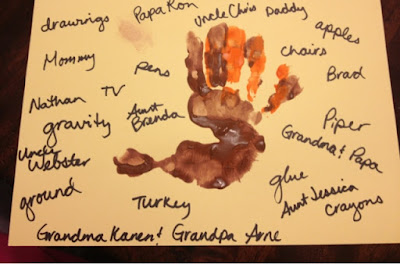 drawings
Papa Ron
Uncle Chris
Daddy
apples
Mommy
pens
chairs
Brad
Nathan
TV
Aunt
Brenda
gravity
Piper
Grandma & Papa
Webster
glue
ground
Turkey
Aunt Jessica
Crayons
Grandma Karen & Grandpa Arne